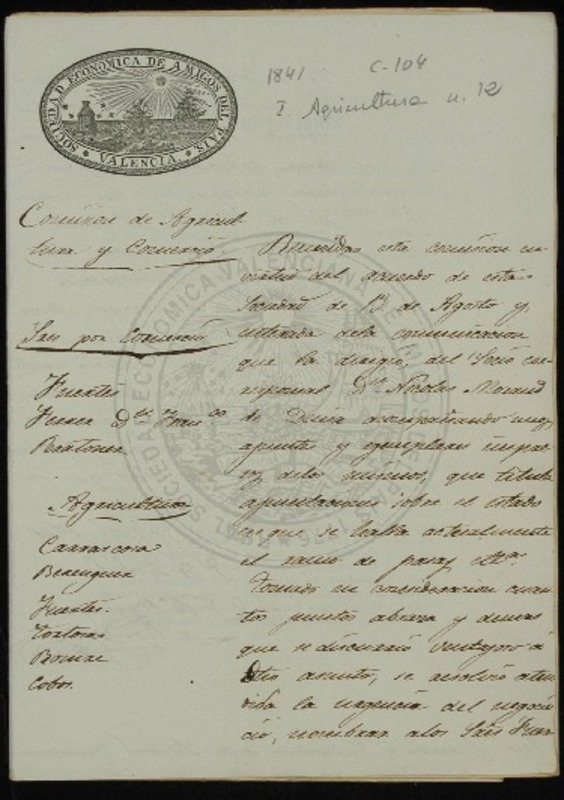 SOCIEDAD ECONOMICA DE AMIGOS DEL PAIS
VALENCIA
1841 C-104
I. Agricultura n. 12
Comision de Agricul-
tura y Comercio
Sres por Comercio
Fuentes
Ferrer Dn Franco
Agricultura
Carrascosa
Berenguer
Fuentes
Cobos.
Reunida esta comision en
virtud del acuerdo de esta
Sociedad de 13 de Agosto y
enterada dela comunicacion
que la dirigió, del Socio cor-
responsal Dn Nicolas Morand
de Denia acompañando unos
apuntes y ejemplares impre-
sos delos mismos, que titula
apuntaciones sobre el estado
en que se halla actualmente
el ramo de pasas
Tomado en consideracion cuan-
tos puntos abraza y demas
que se discurrió ventajoso á
dicho asunto, se resolvió aten-
dida la urgencia del negocio
nombrar alos Sres